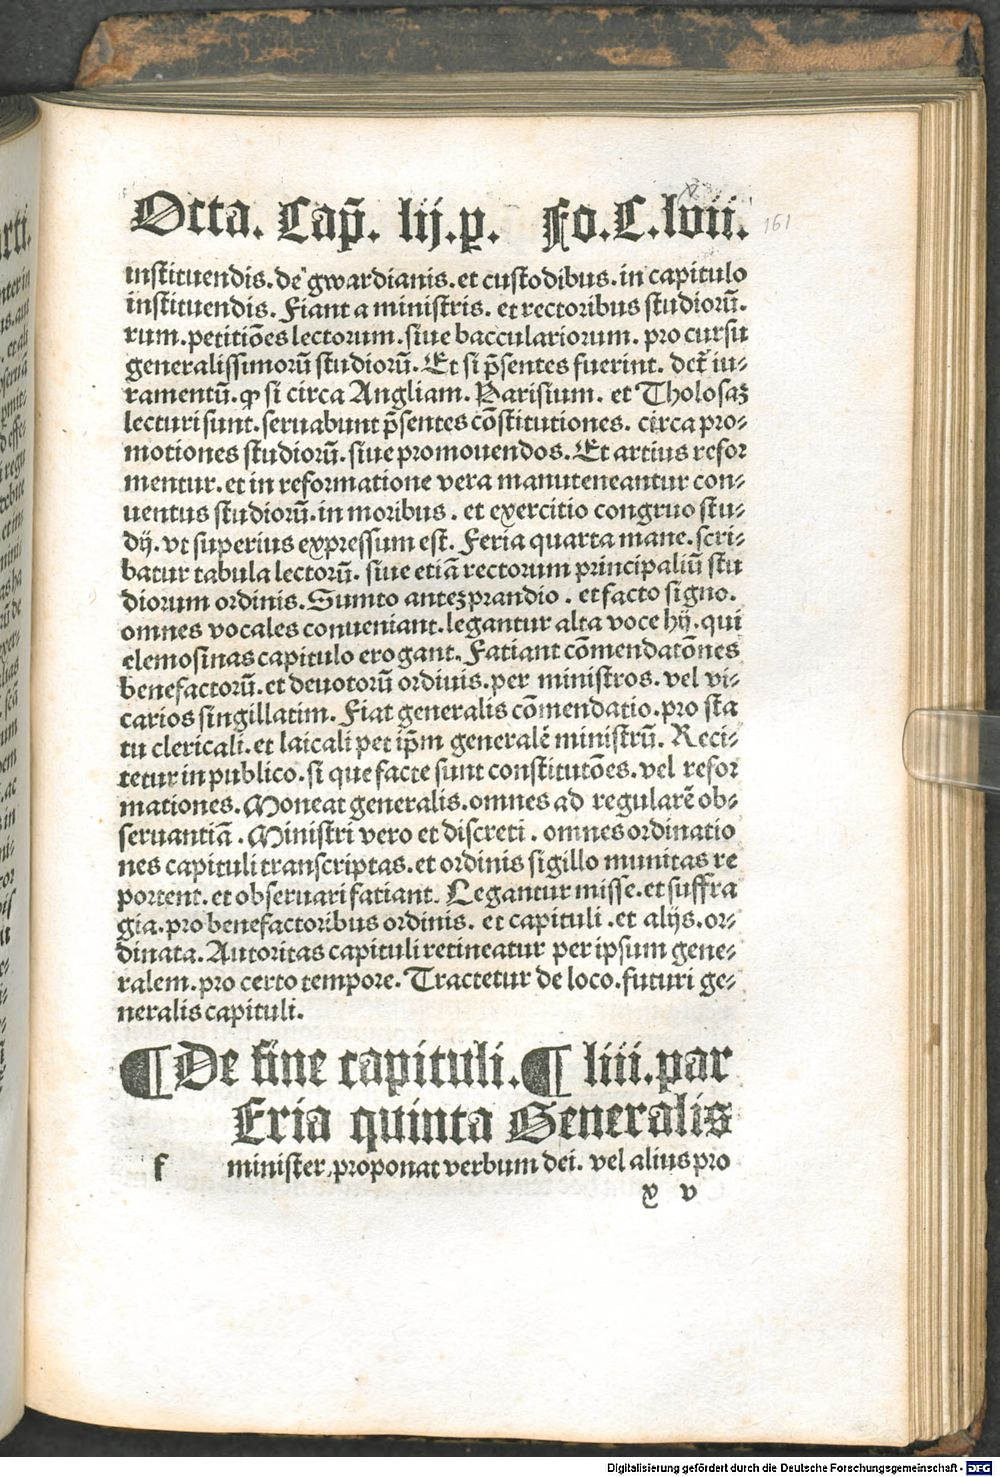 Octa. Cap̄. lij.p. Fo.C.lvii.
161
instituendis. de gwardianis. et custodibus. in capitulo
instituendis. Fiant a ministris. et rectoribus studiorū.
rum. petitiōes lectorum. siue baccalariorum. pro cursu
generalissimorū studiorū. Et si p̄sentes fuerint. det̄ iu⸗
ramentū. ꝙ si circa Angliam. Parisium. et Tholosaꝫ
lecturi sunt. seruabunt p̄sentes cōstitutiones. circa pro⸗
motiones studiorū. siue promouendos. Et artius refor
mentur. et in reformatione vera manuteneantur con⸗
uentus studiorū. in moribus. et exercitio congruo stu⸗
dij. vt superius expressum est. Feria quarta mane. scri⸗
batur tabula lectorū. siue etiā rectorum principaliū stu
diorum ordinis. Sumto anteꝫ prandio. et facto signo.
omnes vocales conueniant. legantur alta voce hij. qui
elemosinas capitulo erogant. Fatiant cōmendatōnes
benefactorū. et deuotorū ordiuis. per ministros. vel vi⸗
carios singillatim. Fiat generalis cōmendatio. pro sta
tu clericali. et laicali pet ip̄m generalē ministrū. Reci⸗
tetur in publico. si que facte sunt constitutōes. vel refor
mationes. Moneat generalis. omnes ad regularē ob⸗
seruantiā. Ministri vero et discreti. omnes ordinatio
nes capituli transcriptas. et ordinis sigillo munitas re
portent. et obseruari fatiant. Legantur misse. et suffra
gia. pro benefactoribus ordinis. et capituli. et alijs. or⸗
dinata. Autoritas capituli retineatur per ipsum gene⸗
ralem. pro certo tempore. Tractetur de loco. futuri ge⸗
neralis capituli.
¶ De fine capituli. ¶ liii. par
Eria quinta Generalis
f minister. proponat verbum dei. vel alius pro
x v
Digitalisierung gefördert durch die Deutsche Forschungsgemeinschaft - DFG